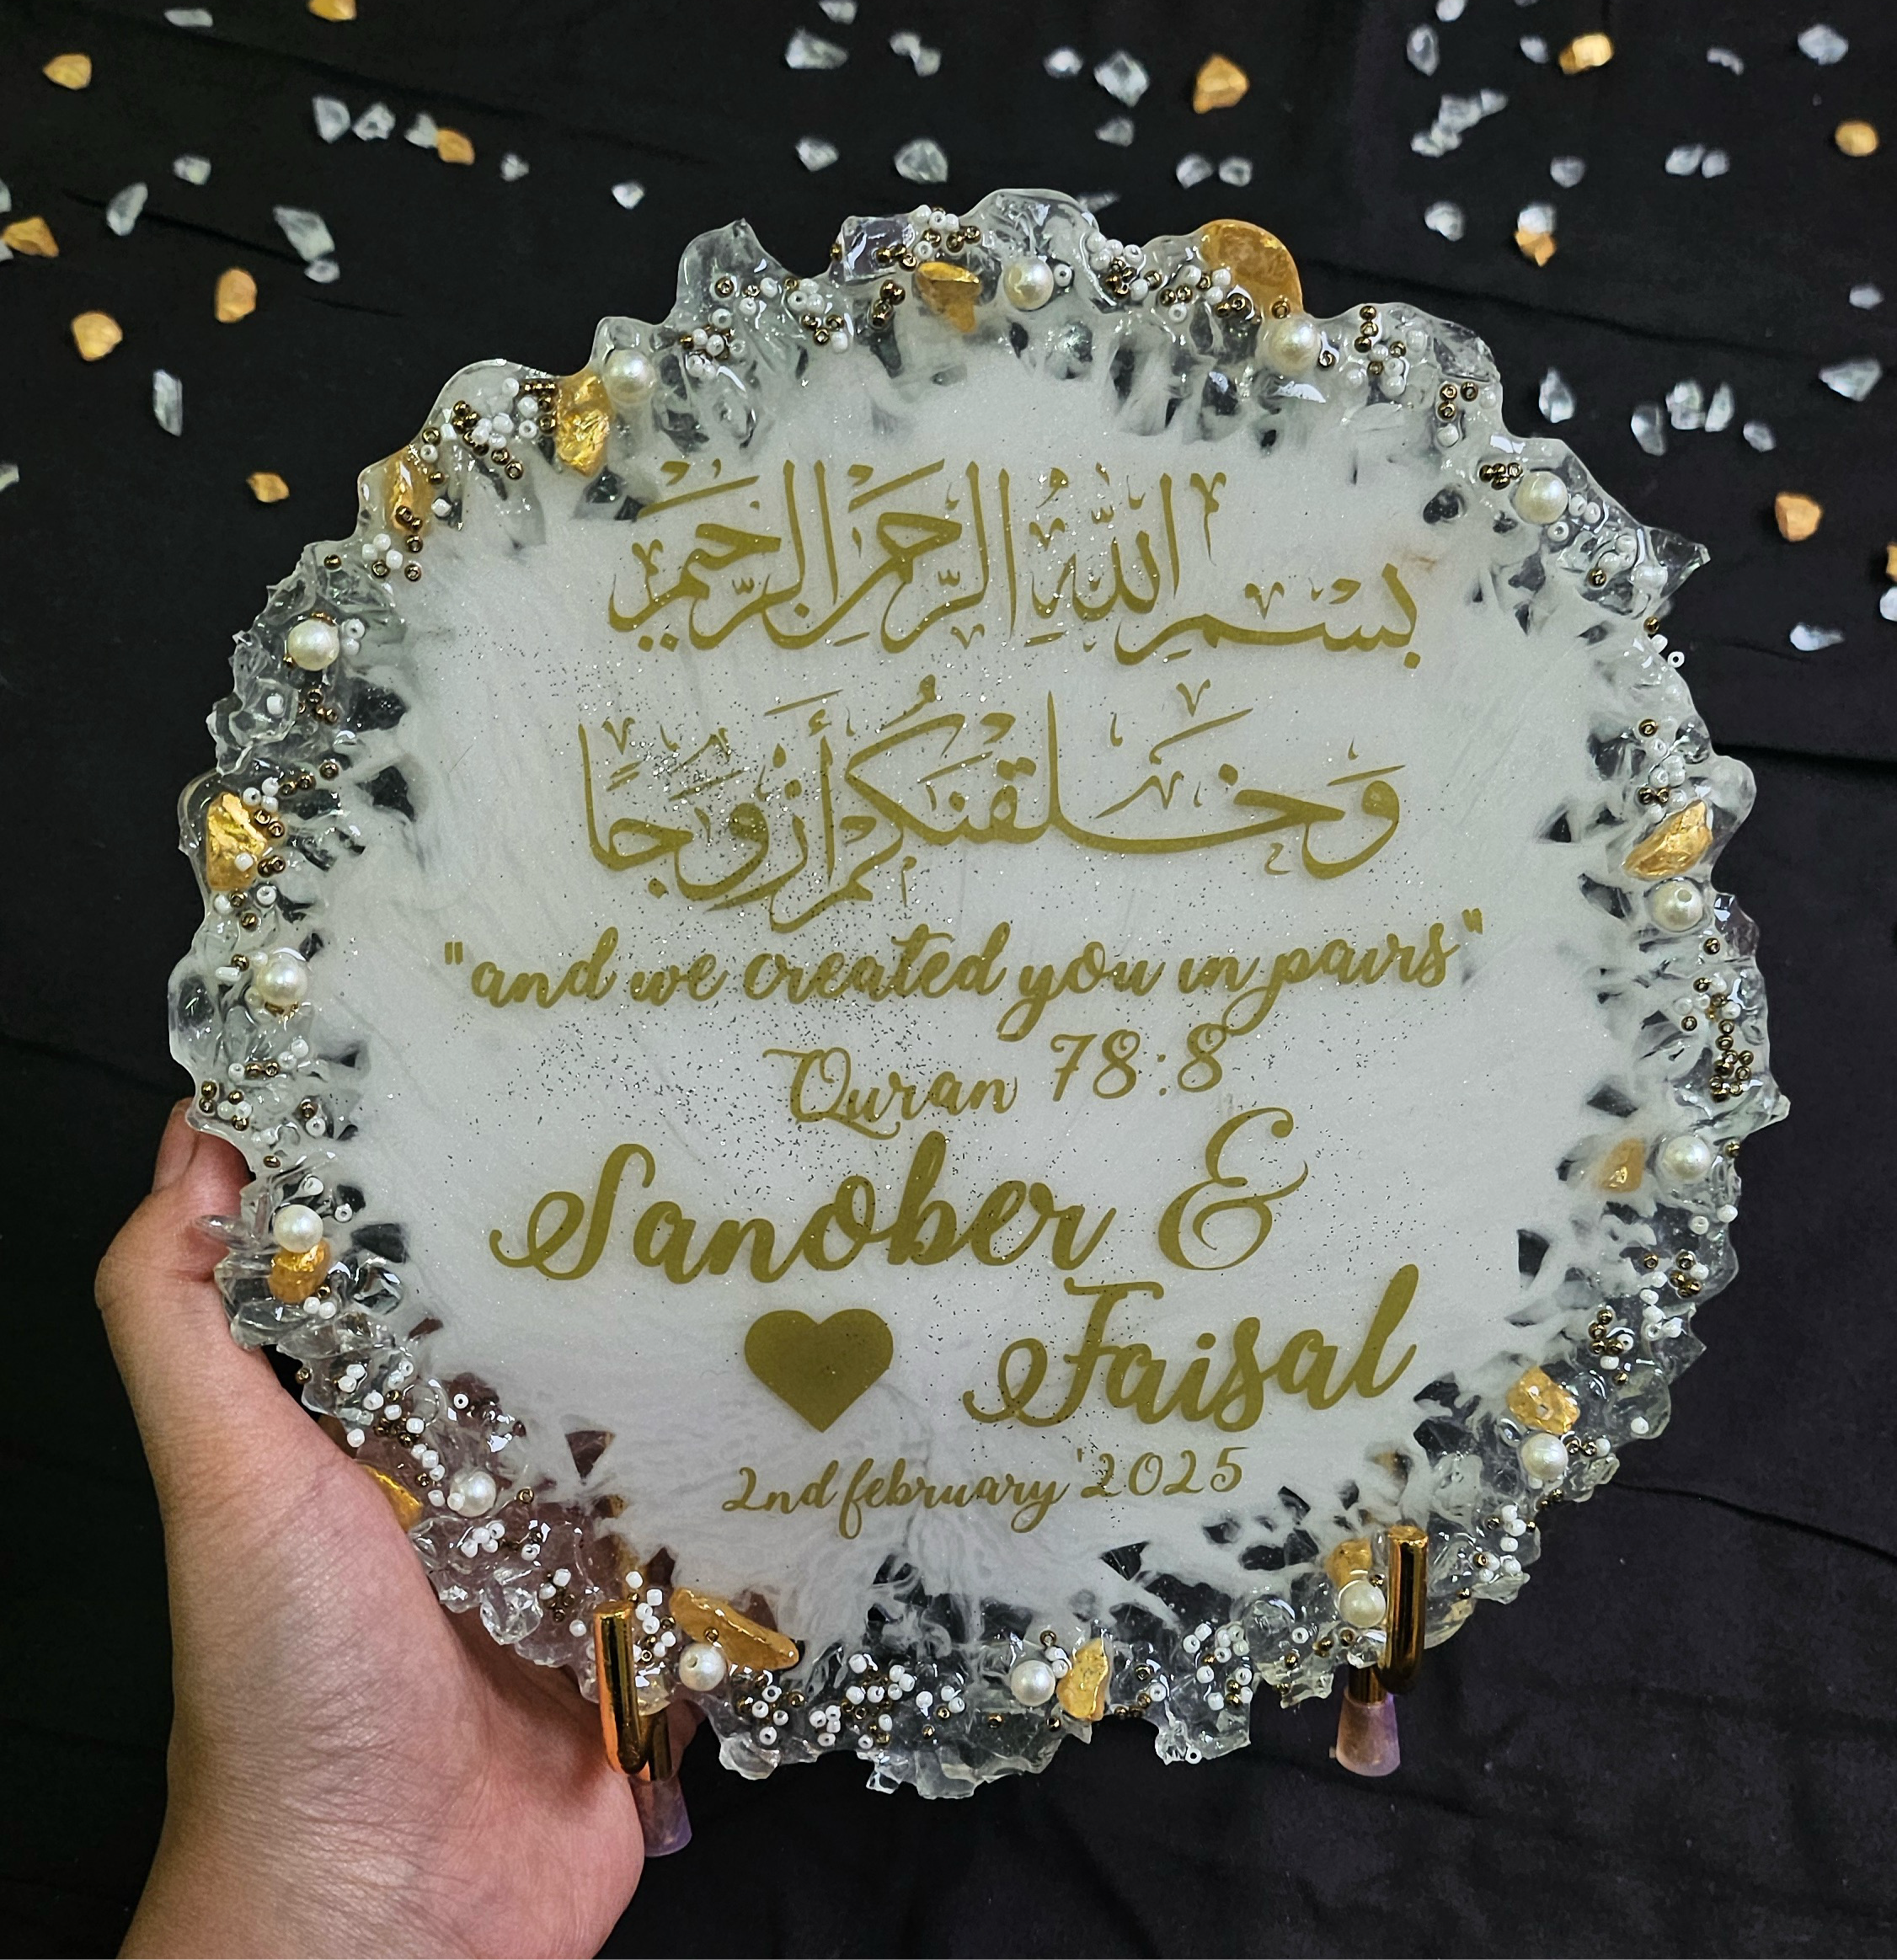 بِسْمِ اللَّهِ الرَّحْمَٰنِ الرَّحِيمِ
وَخَلَقْنَٰكُمْ أَزْوَٰجًا
"and we created you in pairs"
Quran 78:8
Sanober &
Faisal
2nd february '2025